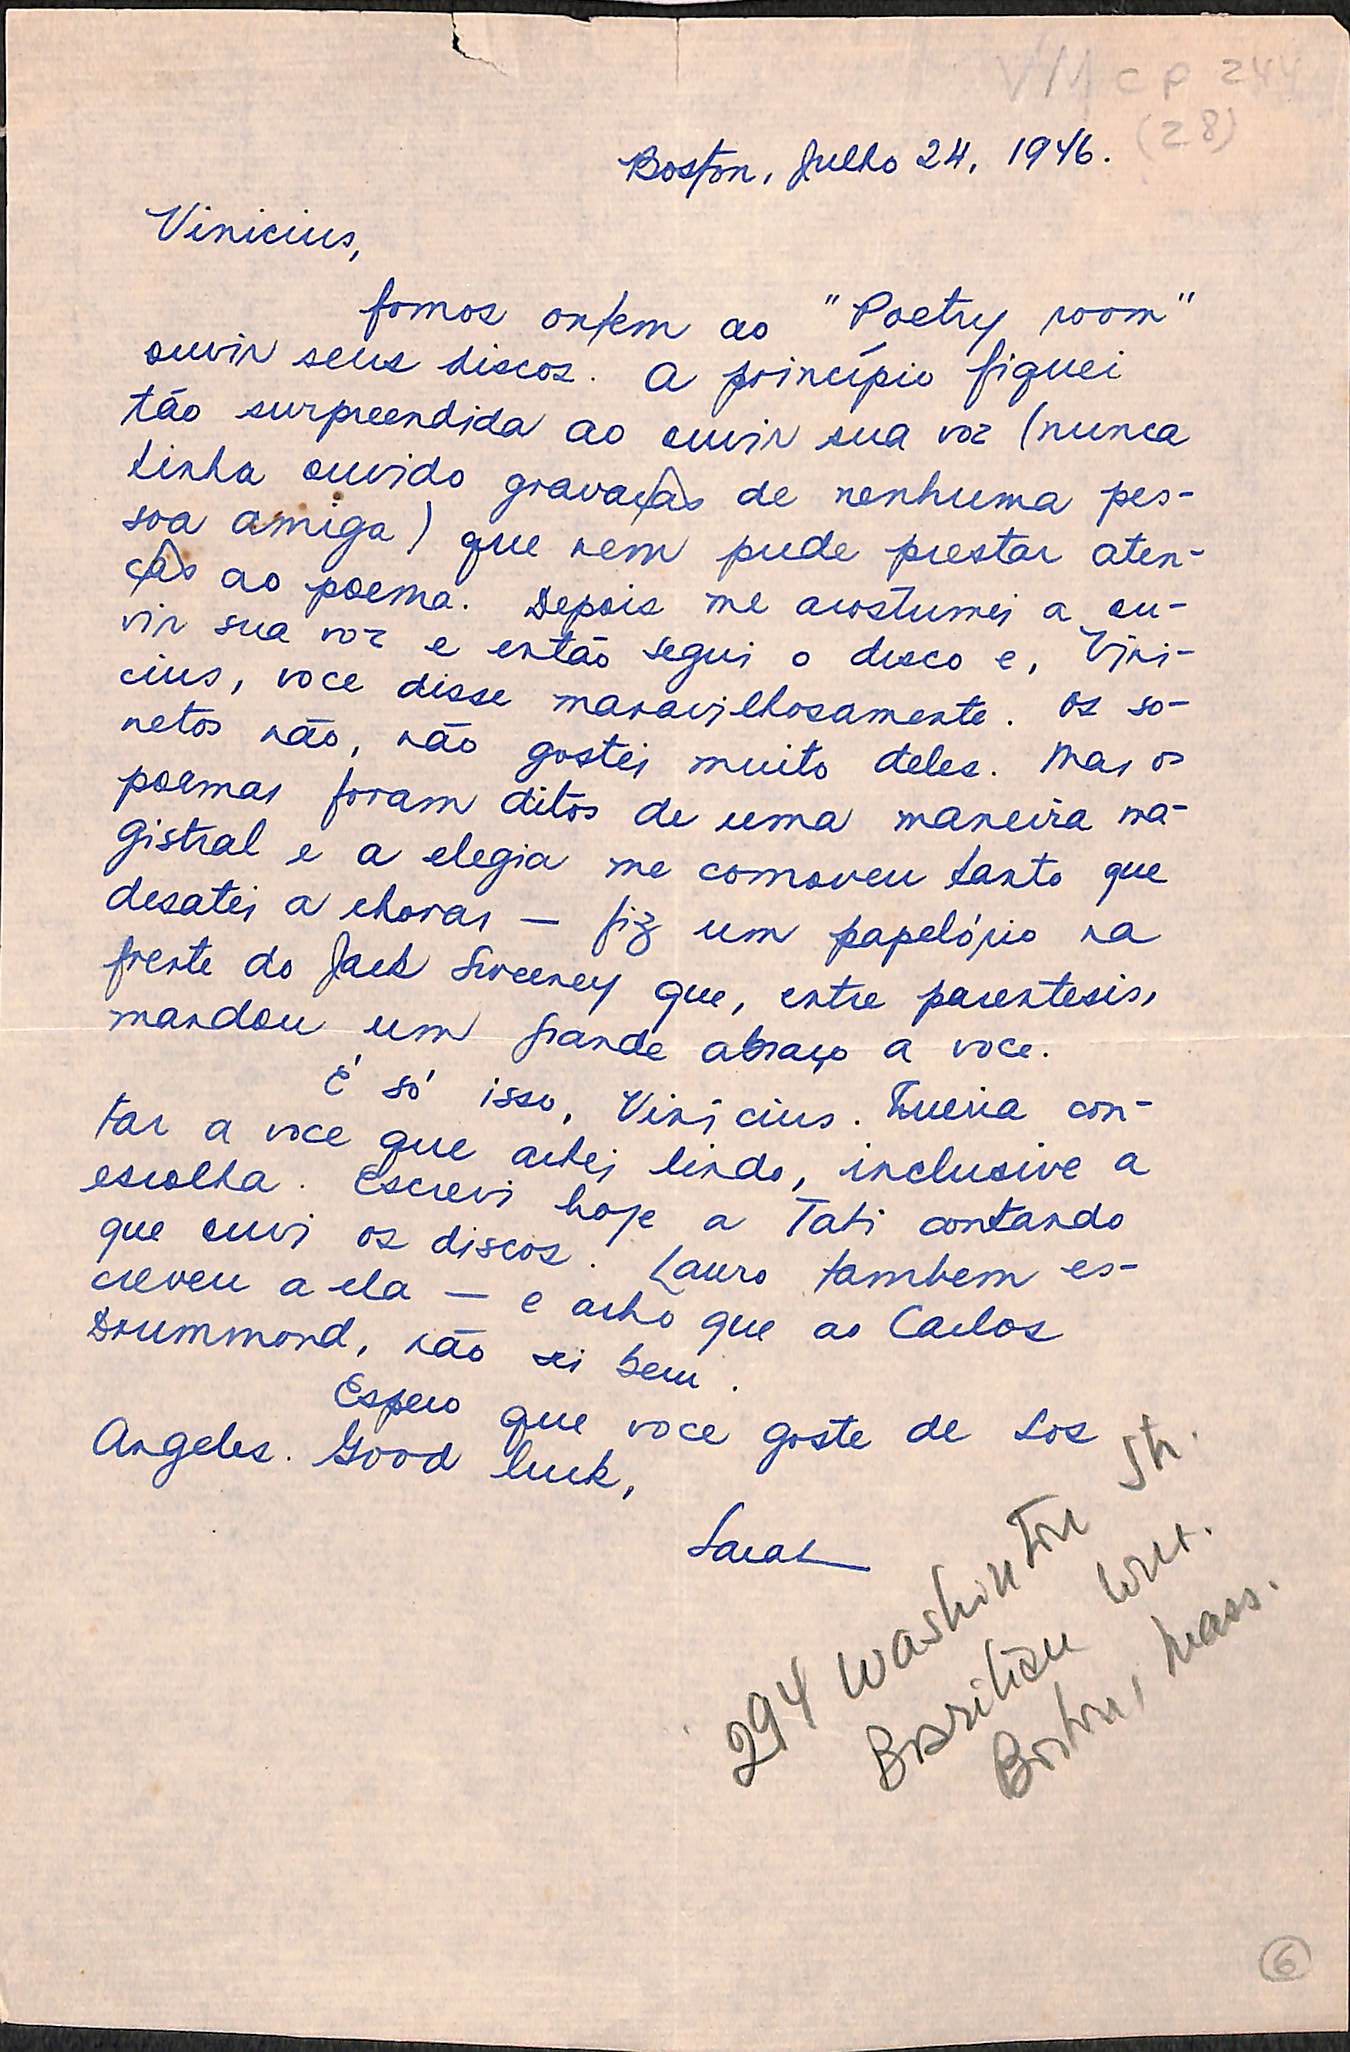 VM CP 244
(28)
Boston, Julho 24, 1946.
Vinicius,
fomos ontem ao "Poetry room"
ouvir seus discos. A princípio fiquei
tão surpreendida ao ouvir sua voz (nunca
tinha ouvido gravação de nenhuma pes-
soa amiga) que nem pude prestar aten-
ção ao poema. Depois me acostumei a ou-
vir sua voz e então segui o disco e, Vini-
cius, voce disse maravilhosamente. Os so-
netos não, não gostei muito deles. Mas os
poemas foram ditos de uma maneira ma-
gistral e a elegia me comoveu tanto que
desatei a chorar — fiz um papelório na
frente do Jack Sweeney que, entre parentesis,
mandou um grande abraço a voce.
É só isso, Vinícius. Queria con-
tar a voce que achei lindo, inclusive a
escolha. Escrevi hoje a Tati contando
que ouvi os discos. Lauro tambem es-
creveu a ela — e acho que ao Carlos
Drummond, não sei bem.
Espero que voce goste de Los
Angeles. Good luck,
Sarah
294 Washinton Str.
Brazilian Cons.
Boston, Mass.
6